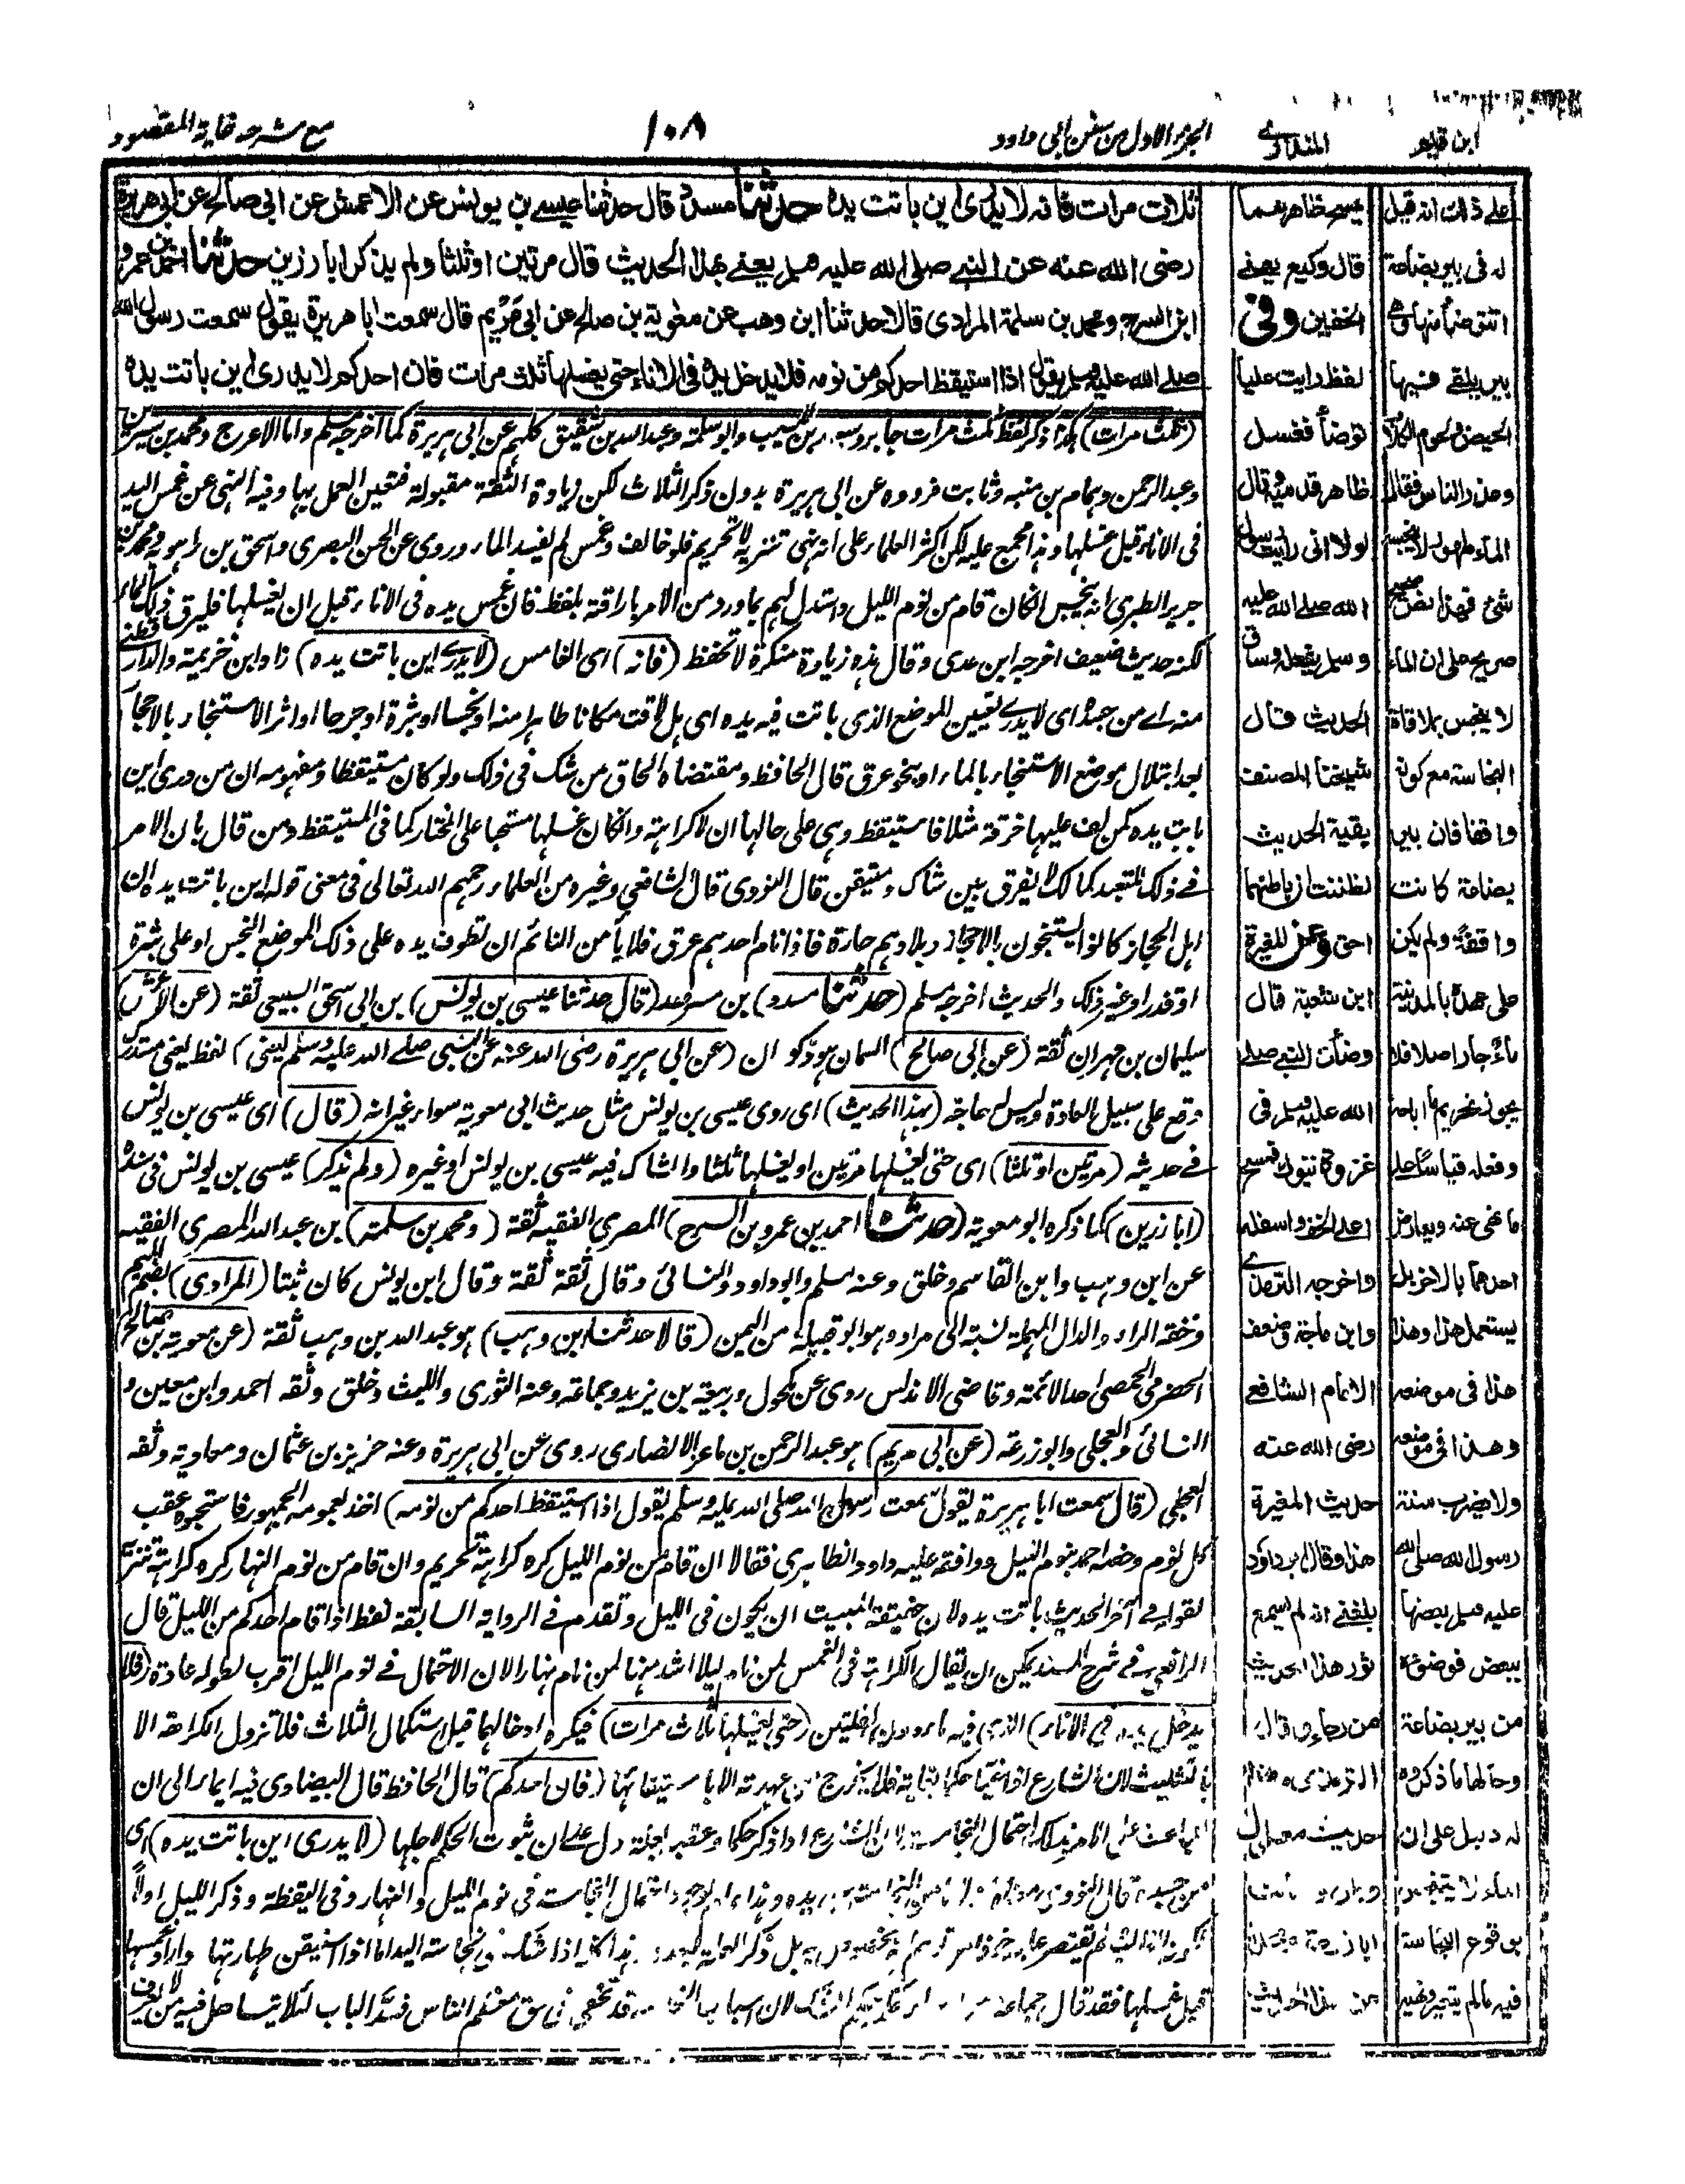 ابن قيم
المنذري
الجزء الاول من سنن ابى داود
١٠٨
مع شرحه غاية المقصود
ثلاث مرات فانه لا يدرى اين باتت يده حدثنا مسدد قال حدثنا عيسى بن يونس عن الاعمش عن ابى صالح عن ابى هريرة
رضى الله عنه عن النبى صلى الله عليه وسلم يعنى بهذا الحديث قال مرتين او ثلثا ولم يذكر ابا رزين حدثنا احمد بن عمرو
ابن السرح ومحمد بن سلمة المرادى قالا حدثنا ابن وهب عن معٰوية بن صالح عن ابى مريم قال سمعت ابا هريرة يقول سمعت رسول الله
صلى الله عليه وسلم يقول اذا استيقظ احدكم من نومه فلا يدخل يده فى الاناء حتى يغسلها ثلث مرات فان احدكم لا يدرى اين باتت يده
(ثلث مرات) هكذا ذكر لفظ ثلث مرات جابر و ابن المسيب وابو سلمة وعبد الله بن شقيق كلهم عن ابى هريرة كما اخرجه مسلم واما الاعرج ومحمد بن سيرين
وعبد الرحمن وهمام بن منبه وثابت فرووه عن ابى هريرة بدون ذكر الثلاث لكن زيادة الثقة مقبولة فتعين العمل بها وفيه النهى عن غمس اليد
فى الاناء قبل غسلها وهذا مجمع عليه لكن اكثر العلماء على انه نهى تنزيه لا تحريم فلو خالف وغمس لم يفسد الماء وروى عن الحسن البصرى واسحق بن راهويه ومحمد بن
جرير الطبرى انه ينجس ان كان قام من نوم الليل واستدل لهم بما ورد من الامر باراقته بلفظ فان غمس يده فى الاناء قبل ان يغسلها فليرق ذلك الماء
لكنه حديث ضعيف اخرجه ابن عدى وقال هذه زيادة منكرة لا تحفظ (فانه) اى الغامس (لا يدرى اين باتت يده) زاد ابن خزيمة والدارقطنى
منه اى من جسده اى لا يدرى تعيين الموضع الذى باتت فيه يده اى هل لاقت مكانا طاهرا منه او نجسا او بثرة او جرحا او اثر الاستنجاء بالاحجار
بعد ابتلال موضع الاستنجاء بالماء او بنحو عرق قال الحافظ ومقتضاه الحاق من شك فى ذلك ولو كان مستيقظا ومفهومه ان من درى اين
باتت يده كمن لف عليها خرقة مثلا فاستيقظ وهى على حالها ان لا كراهة وان كان غسلها مستحبا على المختار كما فى المستيقظ ومن قال بان الامر
فى ذلك للتعبد كمالك لا يفرق بين شاك ومتيقن قال النووى قال الشافعى وغيره من العلماء رحمهم الله تعالى فى معنى قوله اين باتت يده ان
اهل الحجاز كانوا يستنجون بالاحجار وبلادهم حارة فاذا نام احدهم عرق فلا يأمن النائم ان تطوف يده على ذلك الموضع النجس او على بثرة
او قذر او غير ذلك والحديث اخرجه مسلم (حدثنا مسدد) بن مسرهد (قال حدثنا عيسى بن يونس) بن ابى اسحق السبيعى ثقة (عن الاعمش)
سليمان بن مهران ثقة (عن ابى صالح) السمان هو ذكوان (عن ابى هريرة رضى الله عنه عن النبى صلى الله عليه وسلم يعنى) لفظ يعنى مستدرك
وقع على سبيل العادة وليس له حاجة (بهذا الحديث) اى روى عيسى بن يونس مثل حديث ابى معوية سواء غير انه (قال) اى عيسى بن يونس
فى حديثه (مرتين او ثلثا) اى حتى يغسلها مرتين او يغسلها ثلثا والشاك فيه عيسى بن يونس او غيره (ولم يذكر) عيسى بن يونس فى سنده
(ابا رزين) كما ذكره ابو معوية (حدثنا احمد بن عمرو بن السرح) المصرى الفقيه ثقة (ومحمد بن سلمة) بن عبد الله المصرى الفقيه
عن ابن وهب وابن القاسم وخلق وعنه مسلم وابو داود والنسائى وقال ثقة ثقة وقال ابن يونس كان ثبتا (المرادى) بضم الميم
وخفة الراء والدال المهملة نسبة الى مراد وهو ابو قبيلة من اليمن (قالا حدثنا ابن وهب) هو عبد الله بن وهب ثقة (عن معوية بن صالح)
الحضرمى الحمصى احد الائمة وقاضى الاندلس روى عن مكحول وربيعة بن يزيد وجماعة وعنه الثورى والليث وخلق وثقه احمد وابن معين و
النسائى والعجلى وابو زرعة (عن ابى مريم) هو عبد الرحمن بن ماعز الانصارى روى عن ابى هريرة وعنه حريز بن عثمان ومعاوية وثقه
العجلى (قال سمعت ابا هريرة يقول سمعت رسول الله صلى الله عليه وسلم يقول اذا استيقظ احدكم من نومه) اخذ بعمومه الجمهور فاستحبوه عقب
كل نوم وخصه احمد بنوم الليل ووافقه عليه داود الظاهرى فقالا ان قام من نوم الليل كره كراهة تحريم وان قام من نوم النهار كره كراهة تنزيه
لقوله فى آخر الحديث باتت يده لان حقيقة المبيت ان يكون فى الليل وتقدم فى الرواية السابقة لفظ اذا قام احدكم من الليل قال
الرافعى فى شرح المسند يمكن ان يقال الكراهة فى الغمس لمن نام ليلا اشد منها لمن نام نهارا لان الاحتمال فى نوم الليل اقرب لطوله عادة (فلا
يدخل يده فى الاناء) الذى فيه ماء دون القلتين (حتى يغسلها ثلاث مرات) فيكره ادخالها قبل استكمال الثلاث فلا تزول الكراهة الا
بالتثليث لان الشارع اذا غيا حكما بغاية فلا يخرج من عهدته الا باستيفائها (فان احدكم) قال الحافظ قال البيضاوى فيه ايماء الى ان
الباعث على الامر بذلك احتمال النجاسة لان الشارع اذا ذكر حكما وعقبه بعلة دل على ان ثبوت الحكم لاجلها (لا يدرى اين باتت يده) اى
من جسده قال النووى لوجود احتمال النجاسة فى نوم الليل والنهار وفى اليقظة وذكر الليل اولا
بل ذكر العلة بعده هذا كله اذا شك فى نجاسة اليد اما اذا استيقن طهارتها واراد غمسها
قبل غسلها فقد قال جماعة لان اسباب قد تخفى فى حق معظم الناس فسد الباب لئلا يتساهل فيه من لا يعرف
يمسح ظاهرهما
قال وكيع يعنى
الخفين وفى
لفظ رايت عليا
توضأ فغسل
ظاهر قدميه وقال
لولا انى رايت رسول
الله صلى الله عليه
وسلم يفعله وساق
الحديث قال
شيخنا المصنف
بقية الحديث
لظننت ان باطنهما
احق وعن المغيرة
ابن شعبة قال
وضأت النبى صلى
الله عليه وسلم فى
غزوة تبوك فمسح
اعلى الخف واسفله
واخرجه الترمذى
وابن ماجة وضعف
الامام الشافعى
رضى الله عنه
حديث المغيرة
هذا وقال ابو داود
بلغنى انه لم يسمع
ثور هذا الحديث
من رجاء وقال
الترمذى هذا
حديث معلول
وسألت
ابا زرعة ومحمدا
عن هذا الحديث
على ذلك انه قيل
له فى بير بضاعة
اتتوضأ منها وهى
بير يلقى فيها
الحيض ولحوم الكلاب
وعذر الناس فقال
الماء طهور لا ينجسه
شئ فهذا نص صحيح
صريح على ان الماء
لا ينجس بملاقاة
النجاسة مع كونه
واقفا فان بير
بضاعة كانت
واقفة ولم يكن
على عهده بالمدينة
ماء جار اصلا فلا
يجوز تحريم ما اباحه
وفعله قياسا على
ما نهى عنه ويعارض
احدهما بالاخر بل
يستعمل هذا وهذا
هذا فى موضعه
وهذا فى موضعه
ولا يضرب سنة
رسول الله صلى الله
عليه وسلم بعضها
ببعض فوضوءه
من بير بضاعة
وحالها ما ذكروه
له دليل على ان
الماء لا يتنجس
بوقوع النجاسة
فيه ما لم يتغير وغير